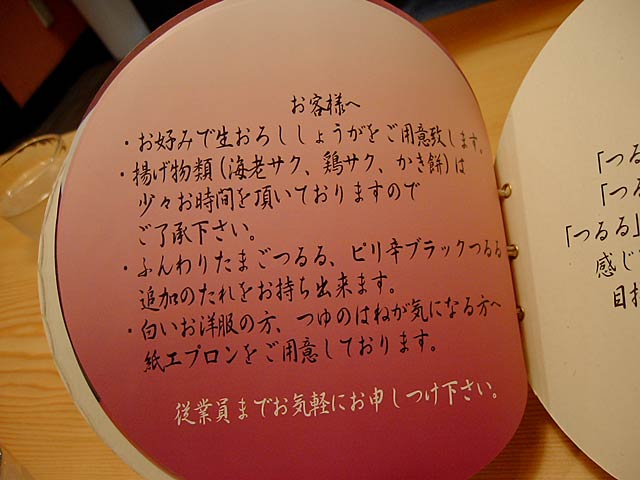 お客様へ
・お好みで生おろししょうがをご用意致します。
・揚げ物類(海老サク、鶏サク、かき餅)は
少々お時間を頂いておりますので
ご了承下さい。
・ふんわりたまごつるる、ピリ辛ブラックつるる
追加のたれをお持ち出来ます。
・白いお洋服の方、つゆのはねが気になる方へ
紙エプロンをご用意しております。
従業員までお気軽にお申しつけ下さい。
「つる
「つる
「つるる」
感じ
目指